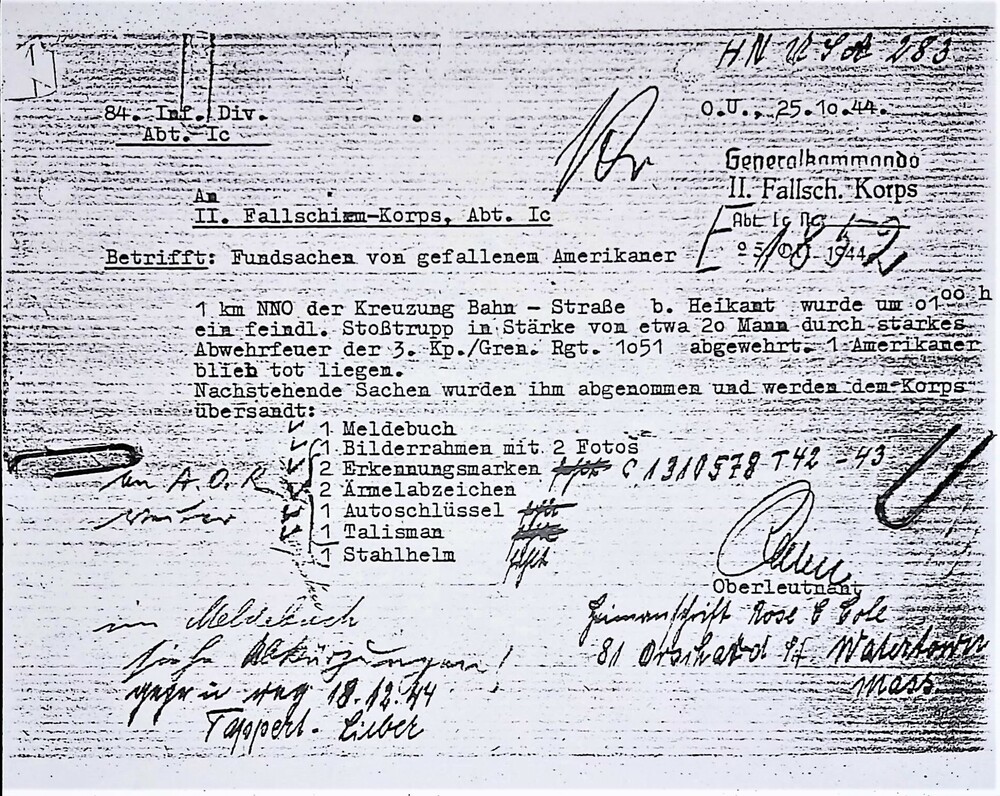 HN USA 283
84. Inf. Div.
Abt. Ic
O.U., 25.10.44.
Generalkommando
II. Fallsch. Korps
Abt Ic
1852
1944
An
II. Fallschirm-Korps, Abt. Ic
Betrifft: Fundsachen von gefallenem Amerikaner
1 km NNO der Kreuzung Bahn - Straße b. Heikant wurde um o1⁰⁰ h
ein feindl. Stoßtrupp in Stärke von etwa 2o Mann durch starkes
Abwehrfeuer der 3. Kp./Gren. Rgt. 1o51 abgewehrt. 1 Amerikaner
blieb tot liegen.
Nachstehende Sachen wurden ihm abgenommen und werden dem Korps
übersandt:
1 Meldebuch
1 Bilderrahmen mit 2 Fotos
2 Erkennungsmarken C. 1310578 T42 - 43
2 Ärmelabzeichen
1 Autoschlüssel
1 Talisman
1 Stahlhelm
an A.O.K
weiter
Oberleutnant
Heimanschrift Rose E Cole
81 Orschard Watertown
Mass.
im Meldebuch
siehe Abkürzungen!
18.12.44
Tappert - Lieber